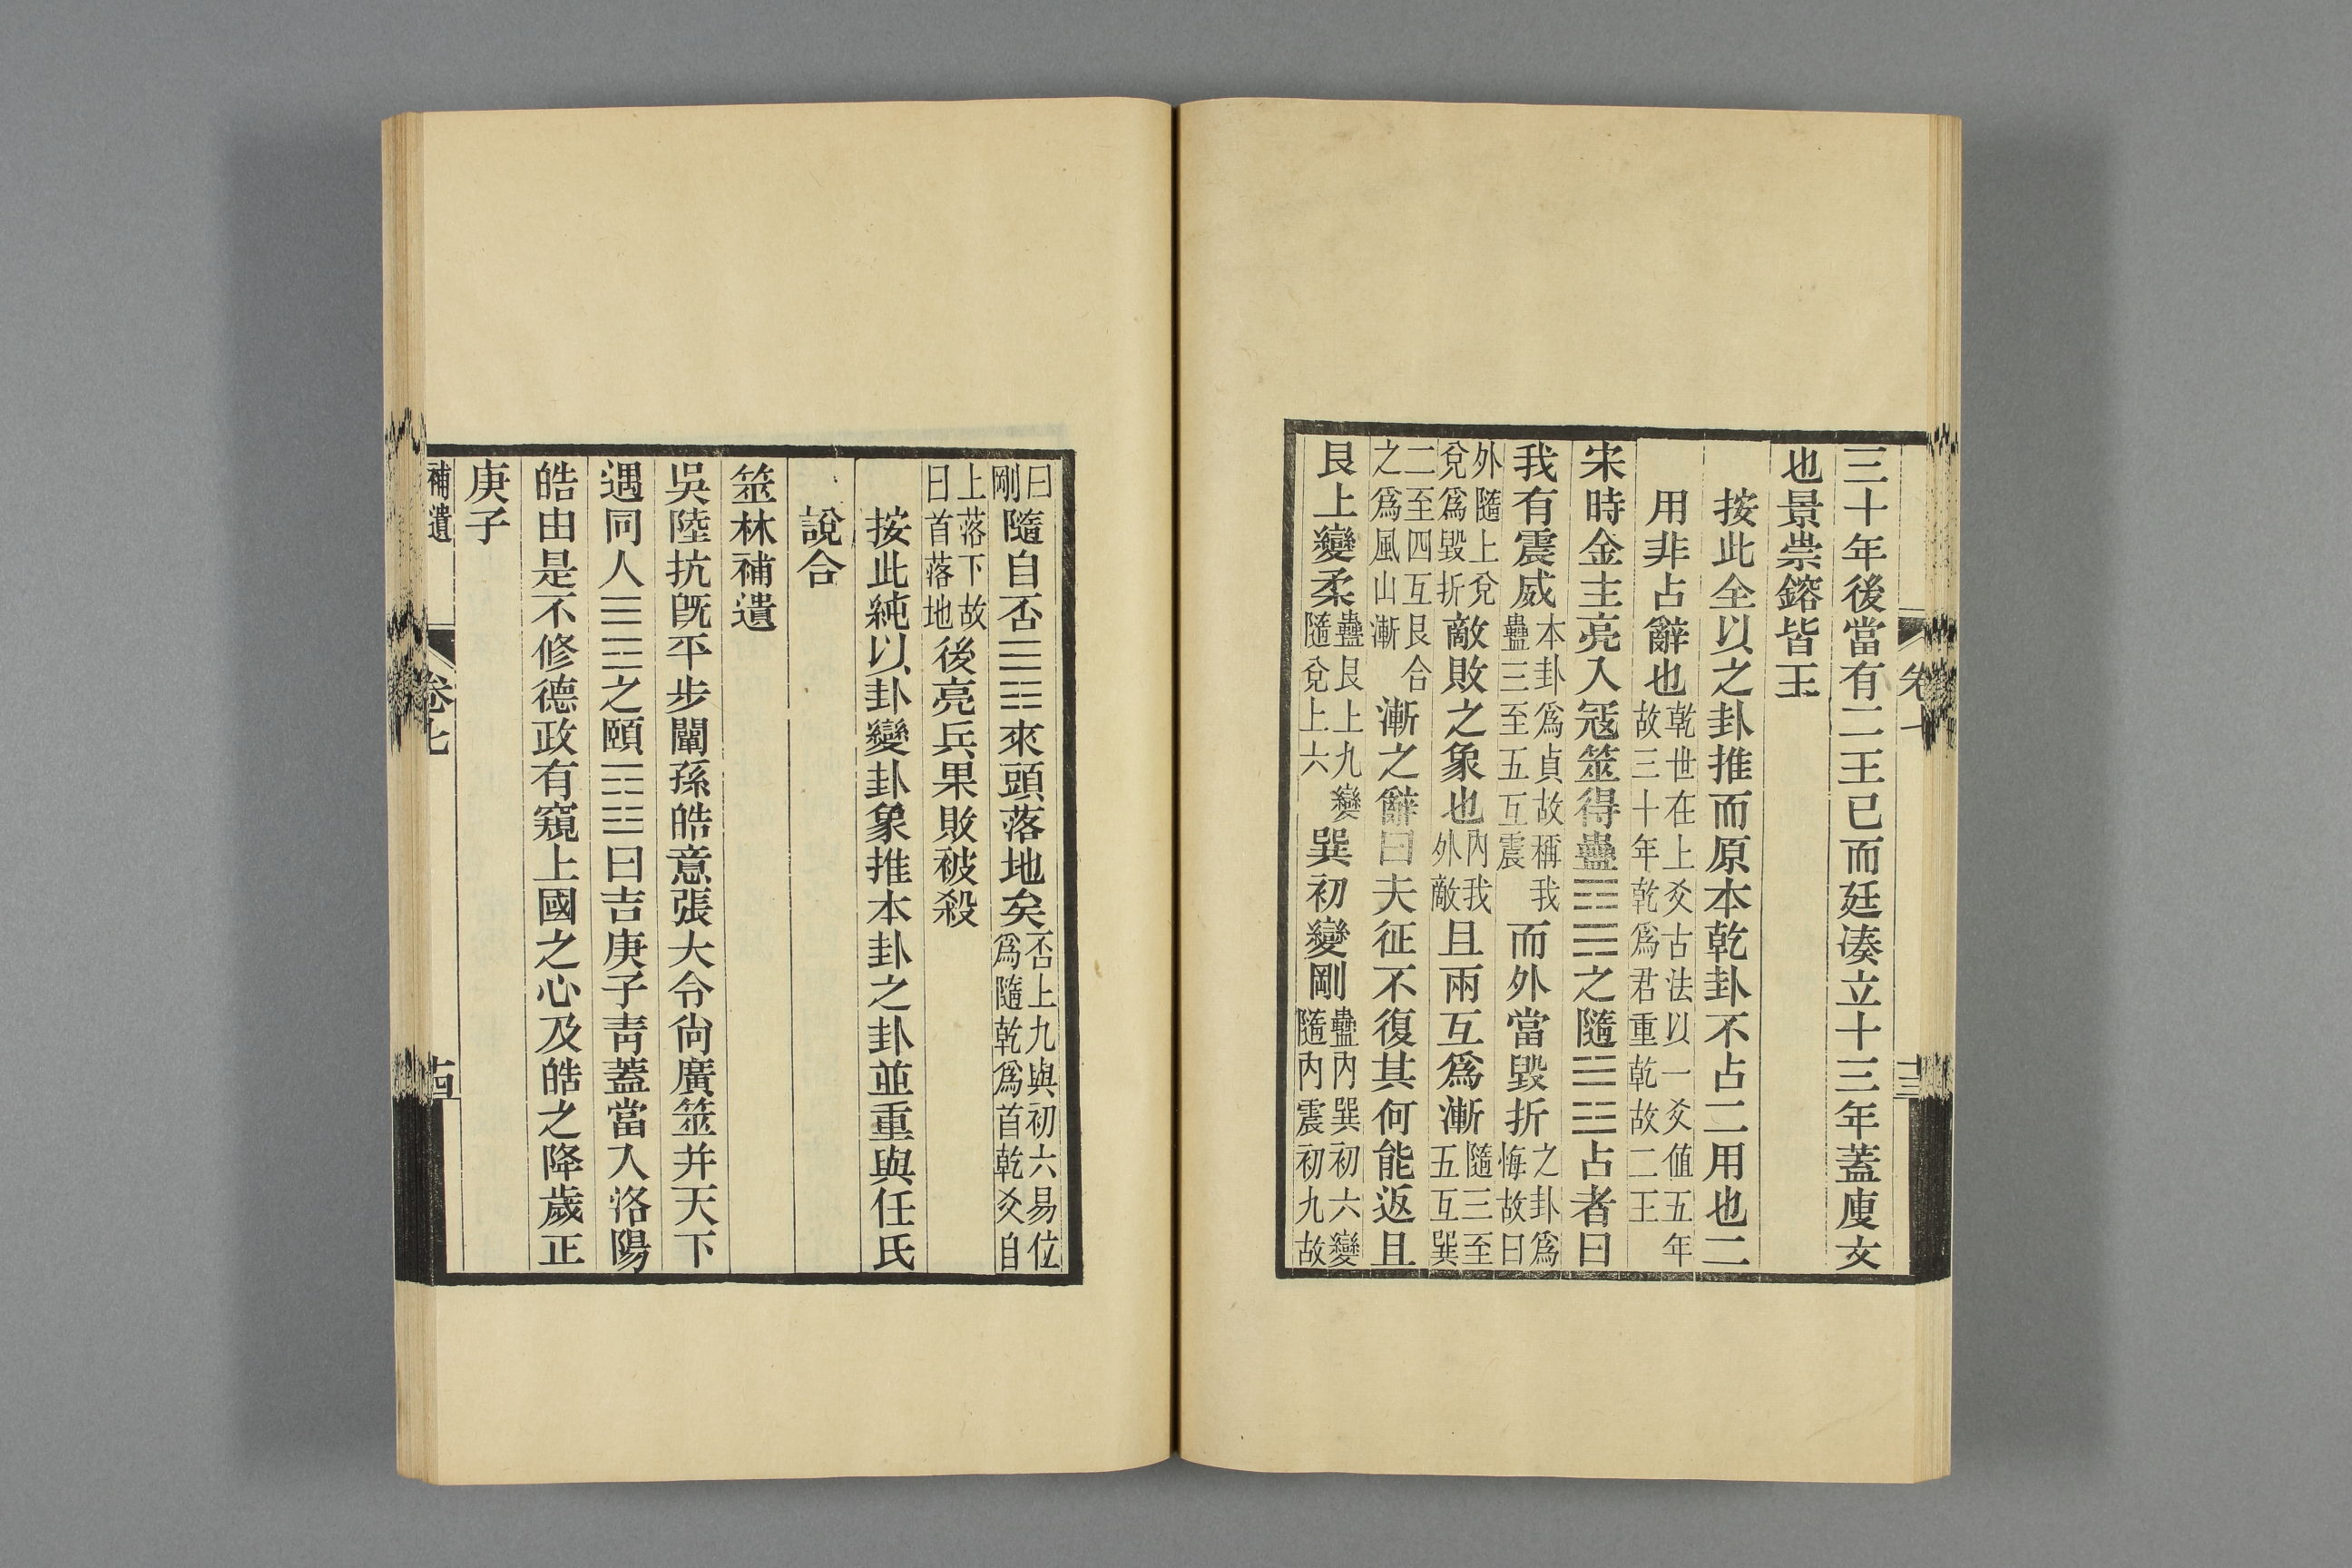 三十年後當有二王已而廷湊立十三年蓋廋文
也景崇鎔皆王
按此全以之卦推而原本乾卦不占二用也二
用非占辭也乾世在上爻古法以一爻值五年故三十年乾爲君重乾故二王
宋時金主亮入寇筮得蠱䷑之隨䷐占者曰
我有震威本卦爲貞故稱我蠱三至五互震而外當毀折之卦爲悔故曰
外隨上兌兌爲毀折敵敗之象也內我外敵且兩互爲漸隨三至五互巽
二至四互艮合之爲風山漸漸之辭曰夫征不復其何能返且
艮上變柔蠱艮上九變隨兌上六巽初變剛蠱內巽初六變隨內震初九故
曰剛隨自否䷋來頭落地矣否上九與初六易位爲隨乾爲首乾爻自
上落下故曰首落地後亮兵果敗被殺
按此純以卦變卦象推本卦之卦並重與任氏
說合
筮林補遺
吳陸抗旣平步闡孫皓意張大令尙廣筮并天下
遇同人䷌之頤䷚曰吉庚子靑蓋當入洛陽
皓由是不修德政有窺上國之心及皓之降歲正
庚子
補遺
卷七
十四